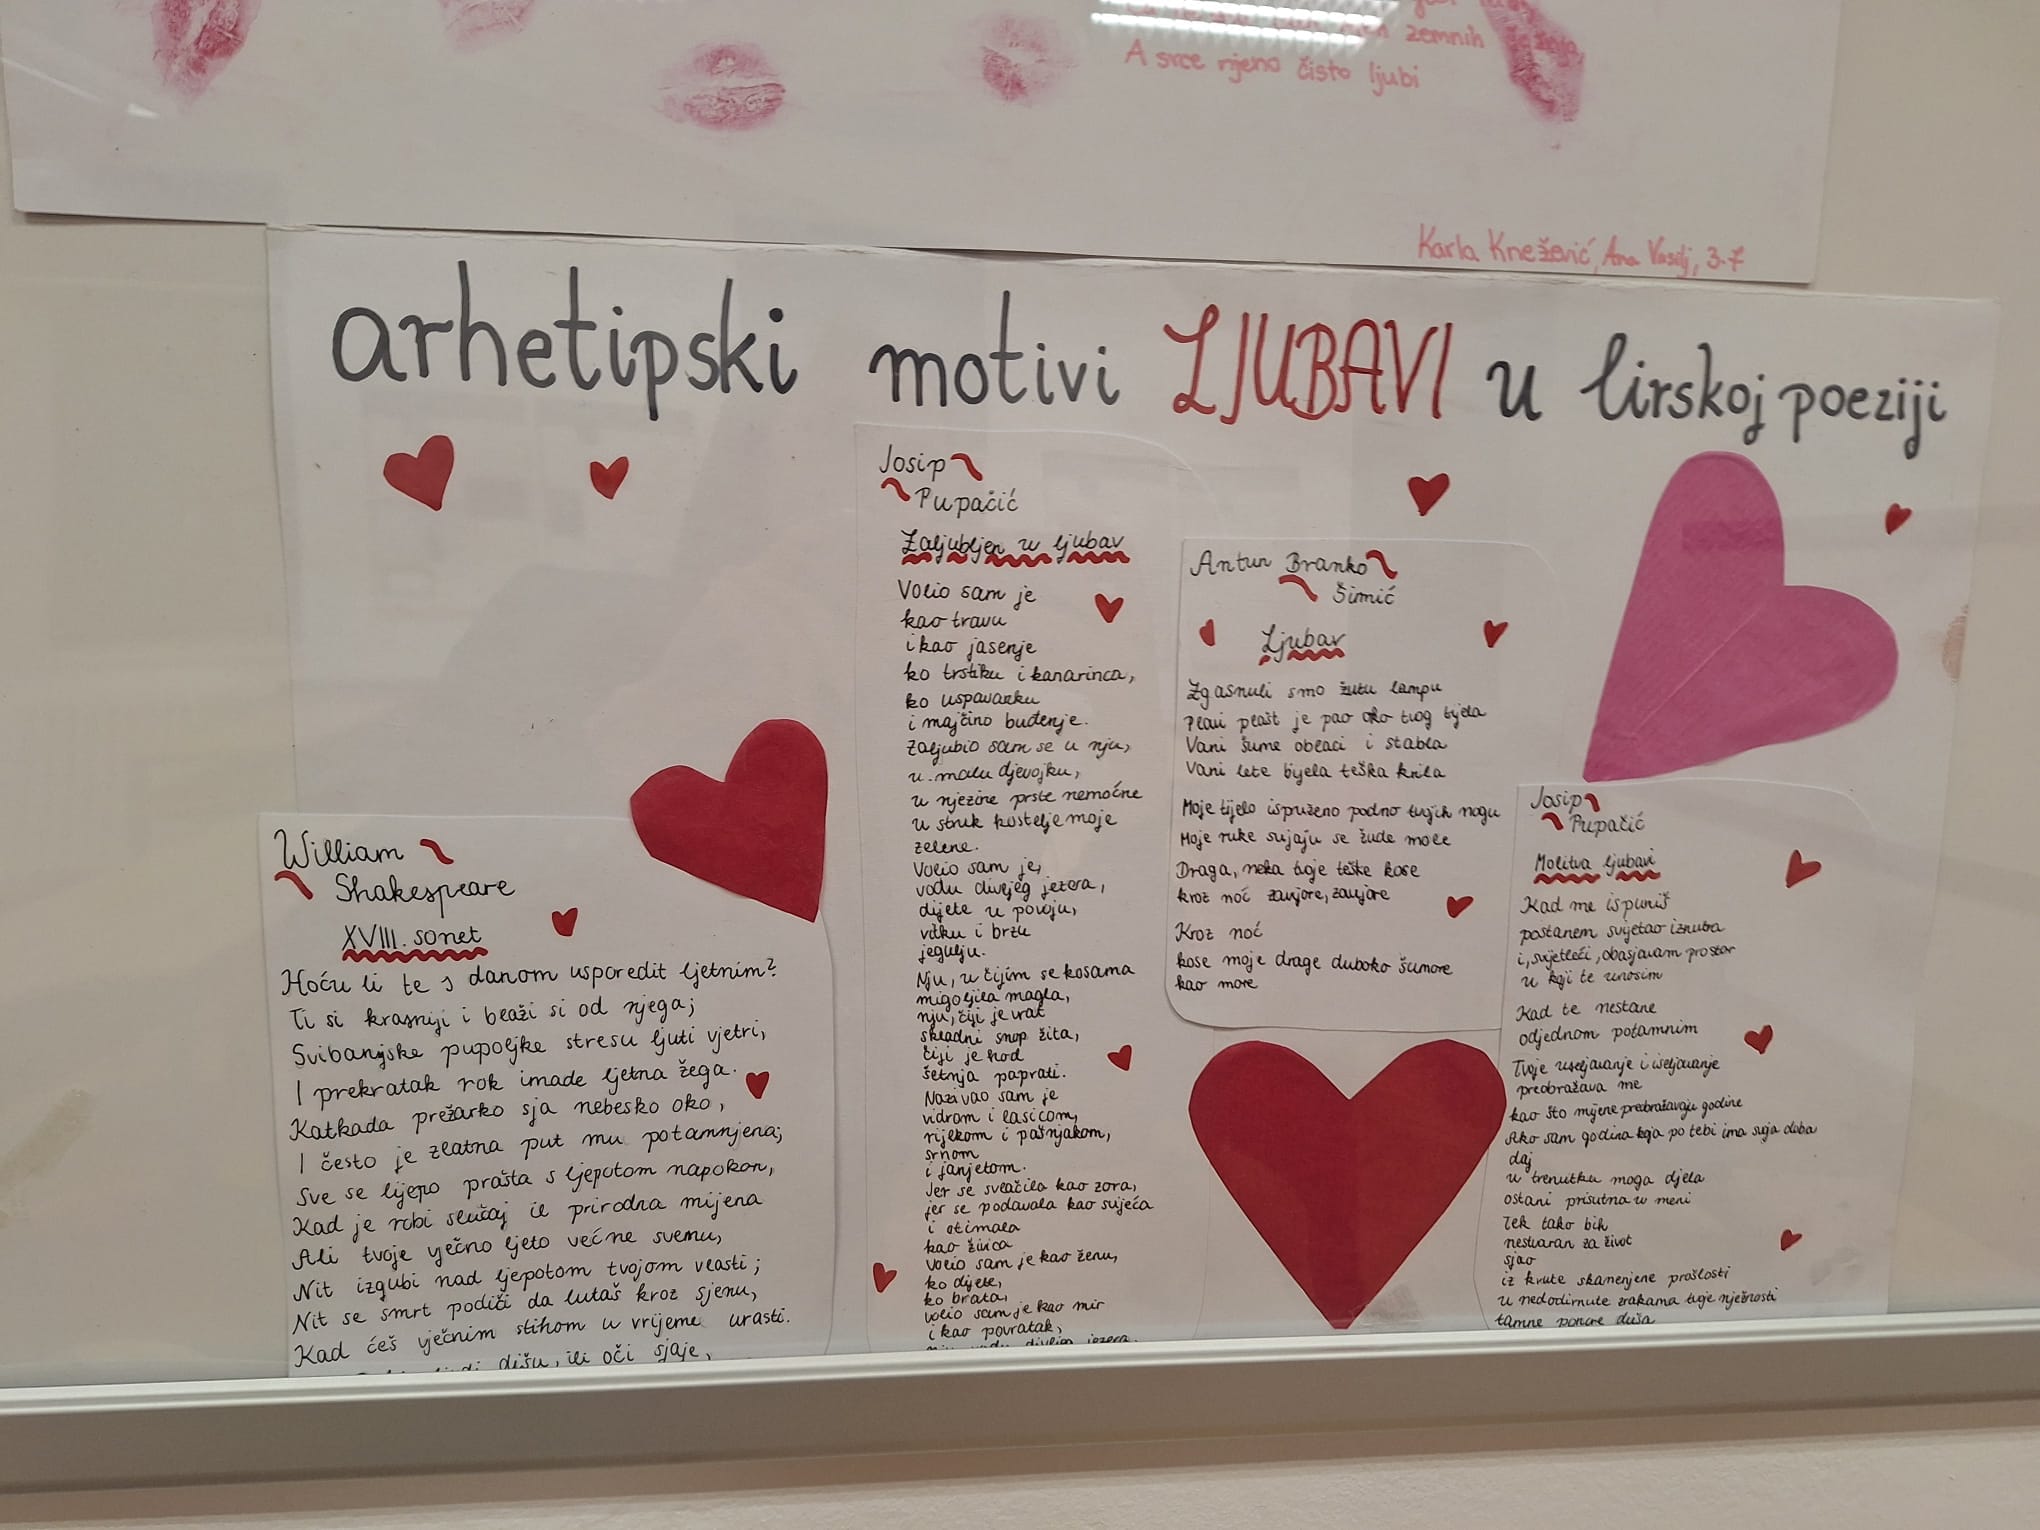 zemnih
A srce njeno čisto ljubi
Karla Knežević, Ana Vasilj, 3.7
arhetipski motivi LJUBAVI u lirskoj poeziji
William
Shakespeare
XVIII. sonet
Hoću li te s danom usporedit ljetnim?
Ti si krasniji i blaži si od njega;
Svibanjske pupoljke stresu ljuti vjetri,
I prekratak rok imade ljetna žega.
Katkada prežarko sja nebesko oko,
I često je zlatna put mu potamnjena;
Sve se lijepo prašta s ljepotom napokon,
Kad je robi slučaj il prirodna mijena
Ali tvoje vječno ljeto većne svemu,
Nit izgubi nad ljepotom tvojom vlasti;
Nit se smrt podiči da lutaš kroz sjenu,
Kad ćeš vječnim stihom u vrijeme urasti.
dišu, ili oči sjaje,
Josip
Pupačić
Zaljubljen u ljubav
Volio sam je
kao travu
i kao jasenje
ko trstiku i kanarinca,
ko uspavanku
i majčino buđenje.
Zaljubio sam se u nju,
u malu djevojku,
u njezine prste nemoćne
u struk košteljemoje
zelene.
Volio sam je,
vodu divljeg jezera,
dijete u povoju,
vitku i brzu
jegulju.
Nju, u čijim se kosama
migoljila magla,
nju, čiji je vrat
skladni snop žita,
čiji je hod
šetnja paprati.
Nazivao sam je
vidrom i lasicom,
rijekom i pašnjakom,
srnom
i janjetom.
Jer se svlačila kao zora,
jer se podavala kao svijeća
i otimala
kao živica
Volio sam je kao ženu,
ko dijete,
ko brata,
volio sam je kao mir
i kao povratak,
nju, vodu divljeg jezera.
Antun Branko
Šimić
Ljubav
Zgasnuli smo žutu lampu
Plavi plašt je pao oko tvog tijela
Vani šume oblaci i stabla
Vani lete bijela teška krila
Moje tijelo ispruženo podno tvojih nogu
Moje ruke svijaju se žude mole
Draga, neka tvoje teške kose
kroz noć zavijore, zavijore
Kroz noć
kose moje drage duboko šumore
kao more
Josip
Pupačić
Molitva ljubavi
Kad me ispuniš
postanem svijetao iznutra
i, svijetleći, obasjavam prostor
u koji te unosim
Kad te nestane
odjednom potamnim
Tvoje useljavanje i iseljavanje
preobražava me
kao što mijene preobražavaju godine
Ako sam godina koja po tebi ima svoja doba
daj
u trenutku moga djela
ostani prisutna u meni
Tek tako bih
nestvaran za život
sjao
iz krute skamenjene prošlosti
u nedodirnute zrakama tvoje nježnosti
tamne ponore duša